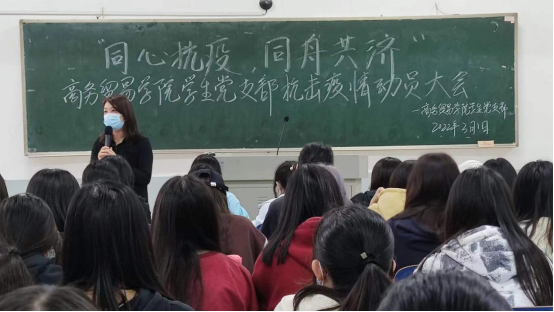 “同心抗疫，同舟共济”
商务贸易学院学生党支部抗击疫情动员大会
—商务贸易学院学生党支部
2022年3月1日